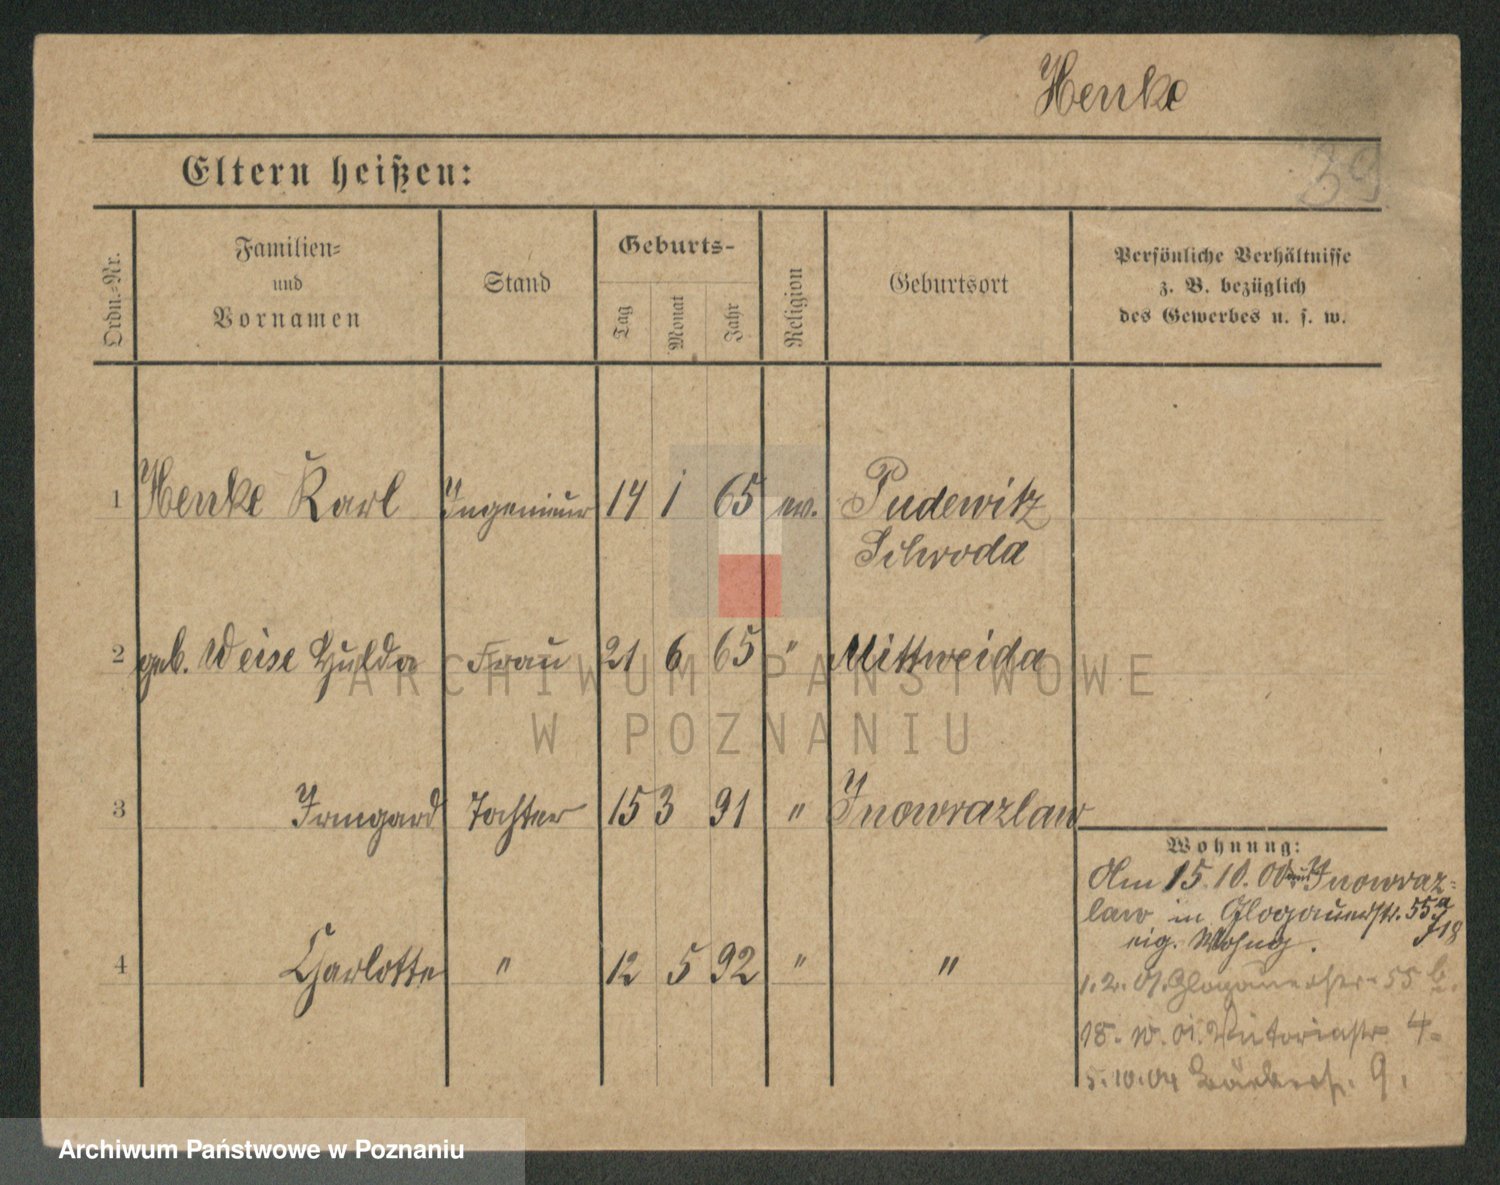 Henke
39
Eltern heißen:
Ordn.-Nr.
Familien-
und
Vornamen
Stand
Geburts-
Tag
Monat
Jahr
Religion
Geburtsort
Persönliche Verhältnisse
z. B. bezüglich
des Gewerbes u. s. w.
1 Henke Karl Ingenieur 14 1 65 ev. Pudewitz
Schroda
2 geb. Weise Hulda Frau 21 6 65 " Mittweida
3 Irmgard Tochter 15 3 91 " Inowrazlaw
4 Charlotte " 12 5 92 " "
Wohnung:
Am 15.10.00 aus Inowraz-
law in Glogauerstr. 55a
J18
eig. Wohng.
1.2.01. Glogauerstr. 55 b.
18. 10. 01. Victoriastr. 4.
5.10.04 9.
ARCHIWUM PAŃSTWOWE
W POZNANIU
Archiwum Państwowe w Poznaniu